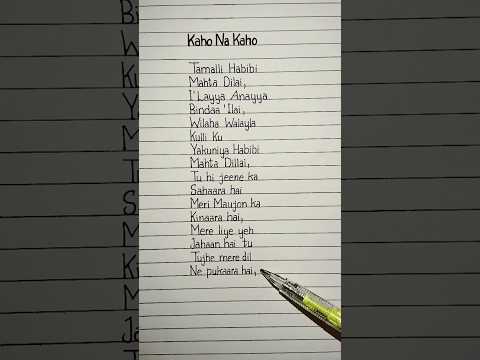 Kaho Na Kaho
Tamalli Habibi
Mahta Dilai,
I'Layya Anayya
Bindaa 'Ilai,
Wilaha Walayla
Kulli Ku
Yakuniya Habibi
Mahta Dillai,
Tu hi jeene ka
Sahaara hai
Meri Maujon ka
Kinaara hai,
Mere liye yeh
Jahaan hai tu
Tujhe mere dil
Ne pukaara hai,